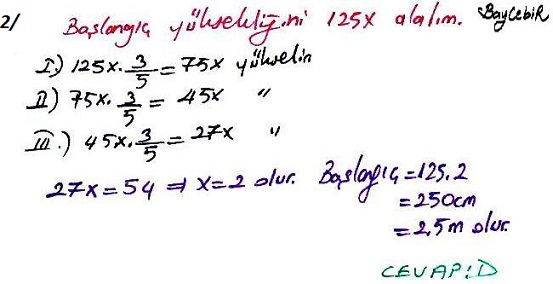 2/ Başlangıç yüksekliğini 125x alalım. Baycebir
I.) 125x.3/5 = 75x yükselir
II) 75x.3/5 = 45x "
III.) 45x.3/5 = 27x "
27x = 54 ⇒ x = 2 olur. Başlangıç = 125.2
= 250cm
= 2,5m olur.
CEVAP: D